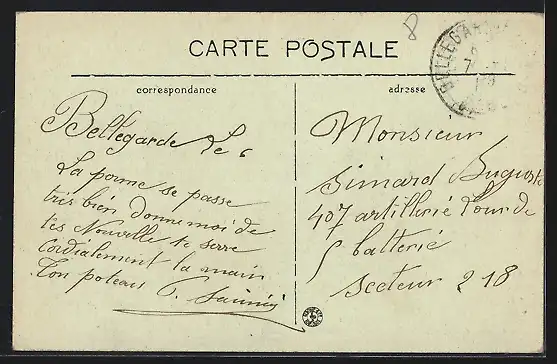 8
CARTE POSTALE
BELLEGARDE
correspondance
adresse
Bellegarde Le 6
La perme se passe
très bien donne moi de
tes Nouvelle te serre
Cordialement la main
Ton poteau
Monsieur
Simard Auguste
407 artillerie Lourde
5 batterie
Secteur 218